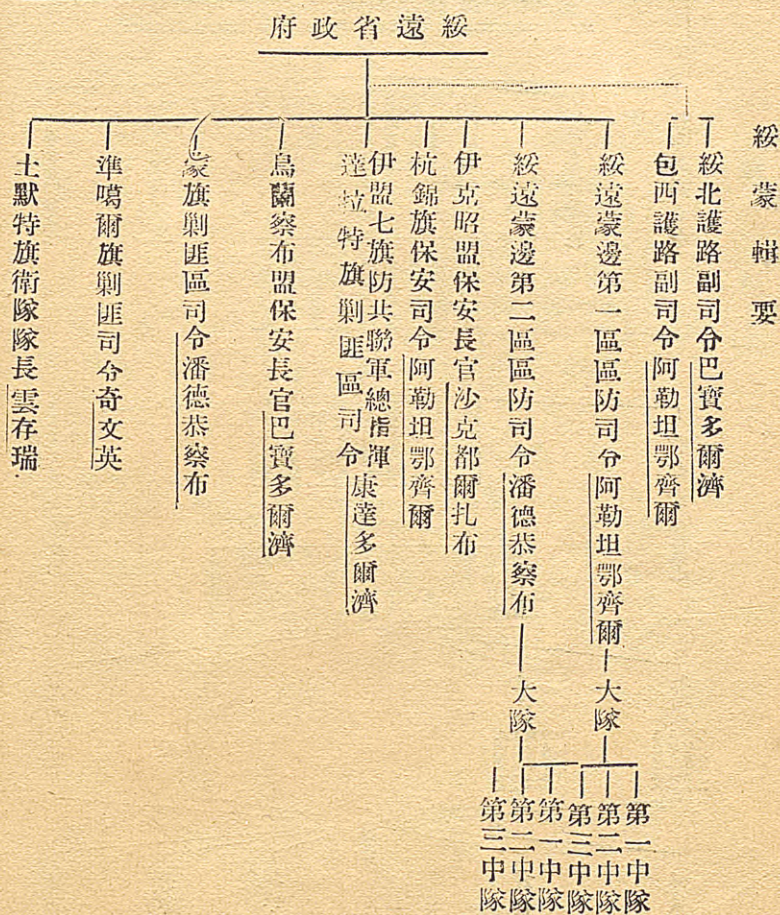 綏蒙輯要
綏遠省政府
綏北護路副司令巴寶多爾濟
包西護路副司令阿勒坦鄂齊爾
綏遠蒙邊第一區區防司令阿勒坦鄂齊爾
大隊
第一中隊
第二中隊
第三中隊
綏遠蒙邊第二區區防司令潘德恭察布
大隊
第一中隊
第二中隊
第三中隊
伊克昭盟保安長官沙克都爾扎布
杭錦旗保安司令阿勒坦鄂齊爾
伊盟七旗防共聯軍總指揮
達拉特旗剿匪區司令康達多爾濟
烏蘭察布盟保安長官巴寶多爾濟
蒙旗剿匪區司令潘德恭察布
準噶爾旗剿匪司令奇文英
土默特旗衛隊隊長雲存瑞